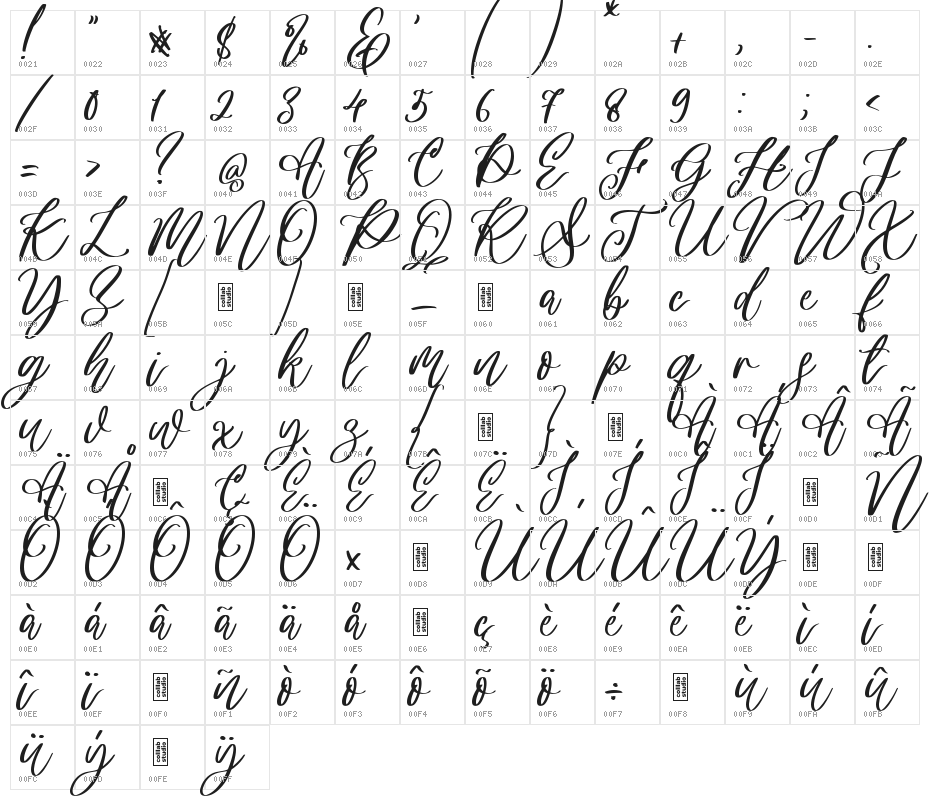 ! " # $ % & ' ( ) * + , - .
0021 0022 0023 0024 0025 0026 0027 0028 0029 002A 002B 002C 002D 002E
/ 0 1 2 3 4 5 6 7 8 9 : ; <
002F 0030 0031 0032 0033 0034 0035 0036 0037 0038 0039 003A 003B 003C
= > ? @ A B C D E F G H I J
003D 003E 003F 0040 0041 0042 0043 0044 0045 0046 0047 0048 0049 004A
K L M N O P Q R S T U V W X
004B 004C 004D 004E 004F 0050 0051 0052 0053 0054 0055 0056 0057 0058
Y Z [ collab studio ] collab studio _ collab studio a b c d e f
0059 005A 005B 005C 005D 005E 005F 0060 0061 0062 0063 0064 0065 0066
g h i j k l m n o p q r s t
0067 0068 0069 006A 006B 006C 006D 006E 006F 0070 0071 0072 0073 0074
u v w x y z { collab studio } collab studio À Á Â Ã
0075 0076 0077 0078 0079 007A 007B 007C 007D 007E 00C0 00C1 00C2 00C3
Ä Å collab studio Ç È É Ê Ë Ì Í Î Ï collab studio Ñ
00C4 00C5 00C6 00C7 00C8 00C9 00CA 00CB 00CC 00CD 00CE 00CF 00D0 00D1
Ò Ó Ô Õ Ö × collab studio Ù Ú Û Ü Ý collab studio collab studio
00D2 00D3 00D4 00D5 00D6 00D7 00D8 00D9 00DA 00DB 00DC 00DD 00DE 00DF
à á â ã ä å collab studio ç è é ê ë ì í
00E0 00E1 00E2 00E3 00E4 00E5 00E6 00E7 00E8 00E9 00EA 00EB 00EC 00ED
î ï collab studio ñ ò ó ô õ ö ÷ collab studio ù ú û
00EE 00EF 00F0 00F1 00F2 00F3 00F4 00F5 00F6 00F7 00F8 00F9 00FA 00FB
ü ý collab studio ÿ
00FC 00FD 00FE 00FF